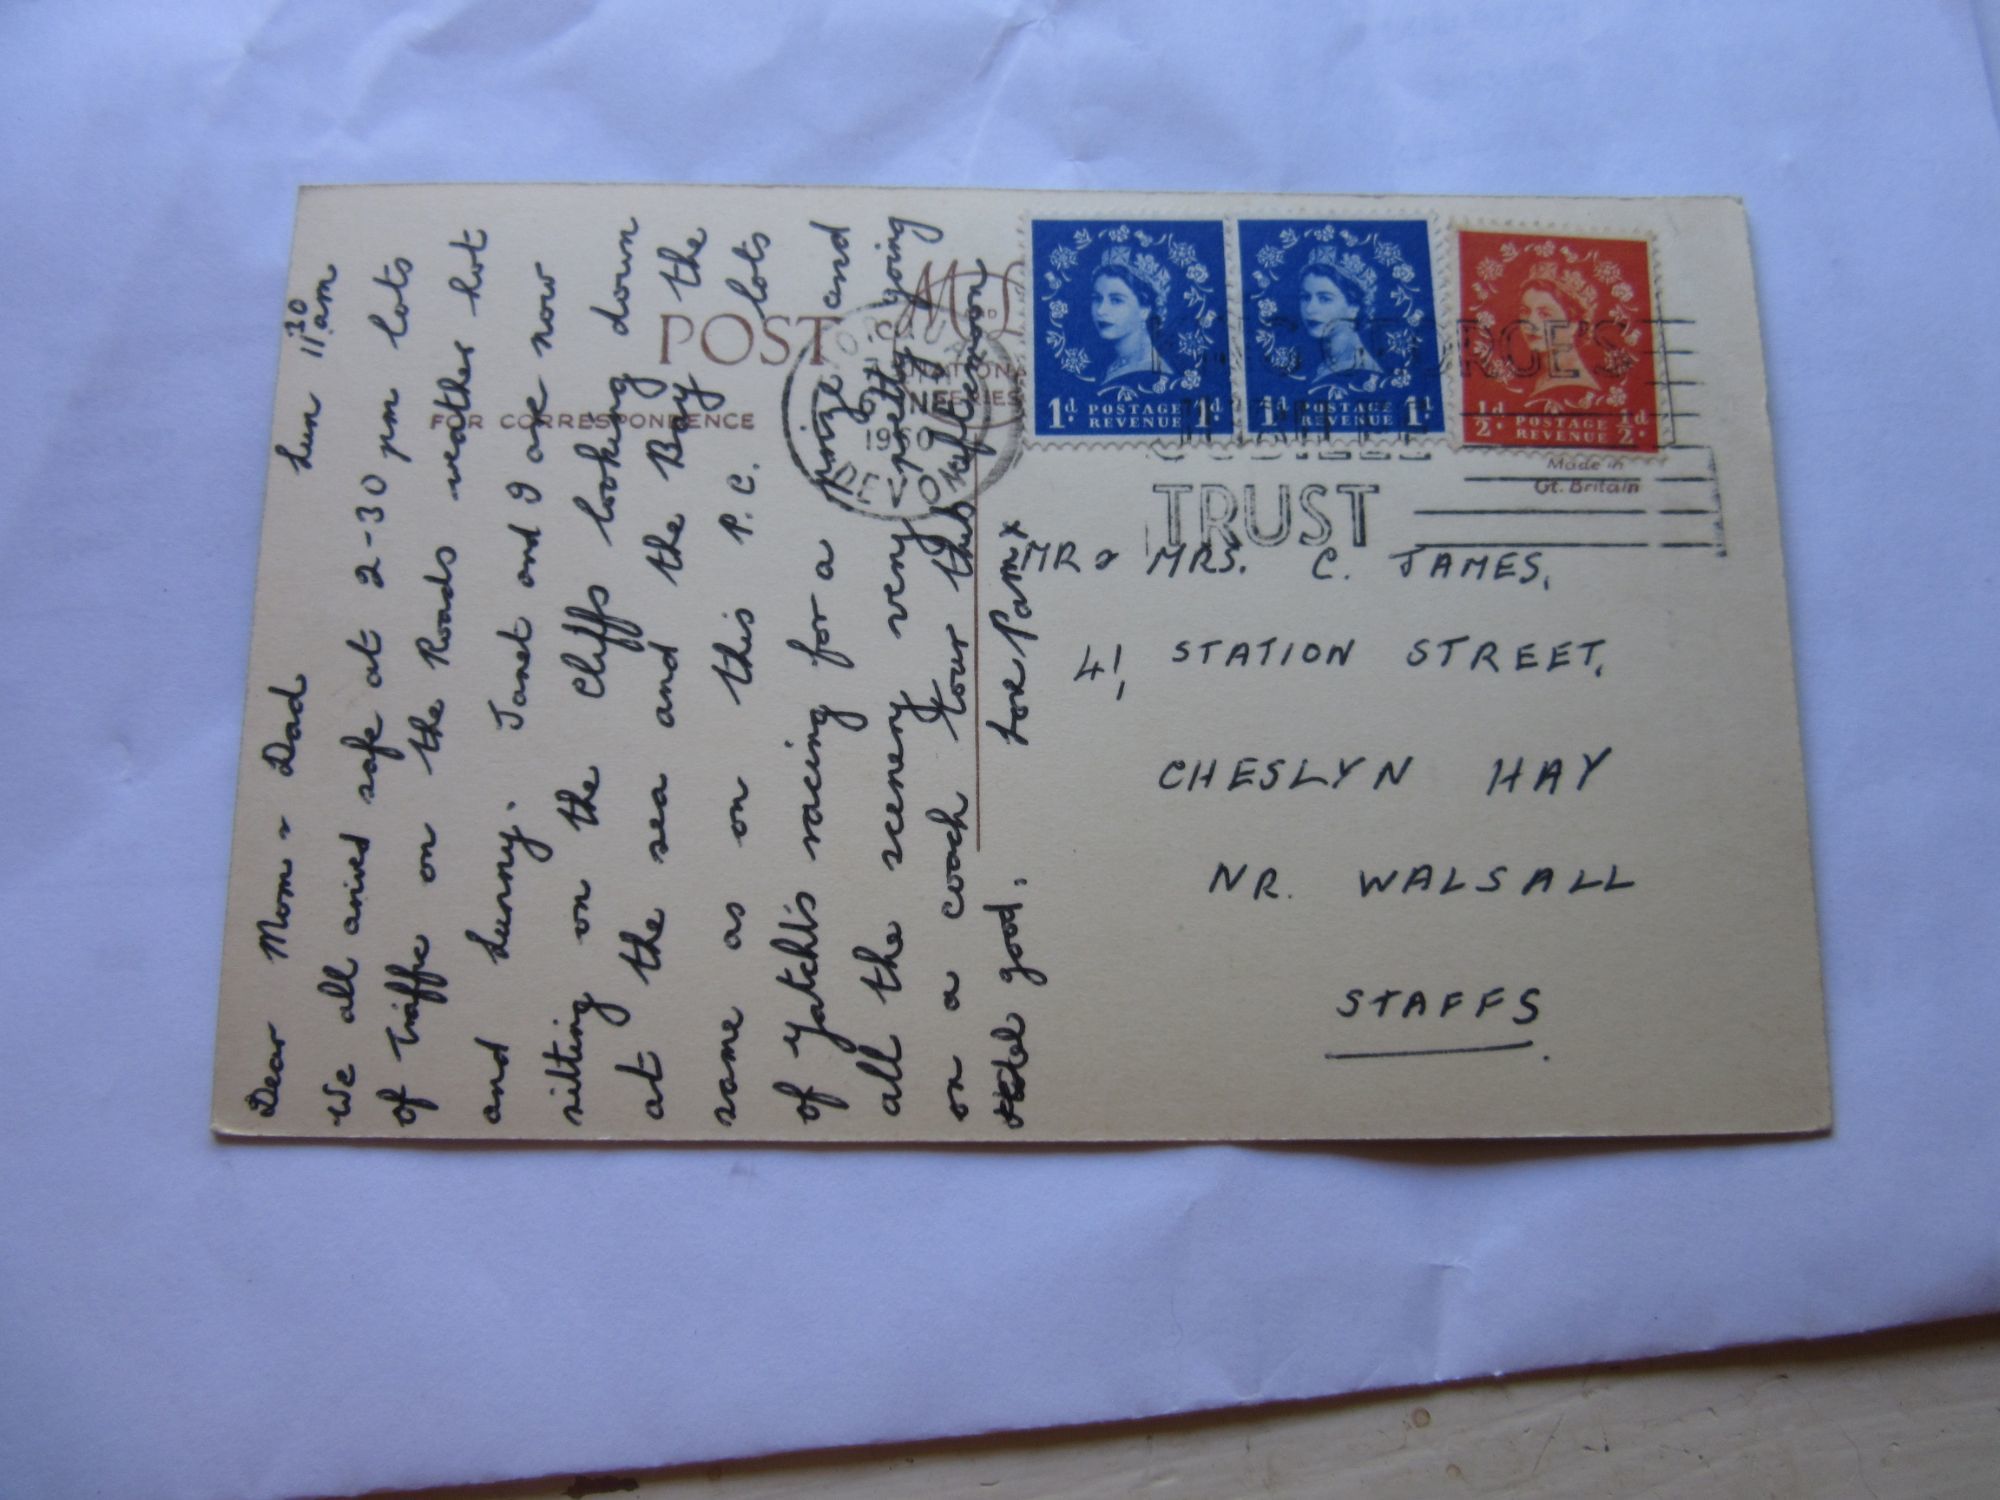 Sun 11 30 am
Dear Mom & Dad
We all arrived safe at 2-30 pm lots
of traffic on the Roads weather hot
and sunny. Janet and I are now
sitting on the cliffs looking down
at the sea and the Bay the
same as on this P.C. lots
of yatchts racing for a prize and
all the scenery very pretty going
on a coach tour this afternoon
Hotel good. Love Pam x
POST
FOR CORRESPONDENCE
1d POSTAGE REVENUE 1d
1d POSTAGE REVENUE 1d
½d POSTAGE REVENUE ½d
GEORGE'S
JUBILEE
TRUST
Made in
Gt. Britain
MR & MRS. C. JAMES,
41, STATION STREET,
CHESLYN HAY
NR. WALSALL
STAFFS.